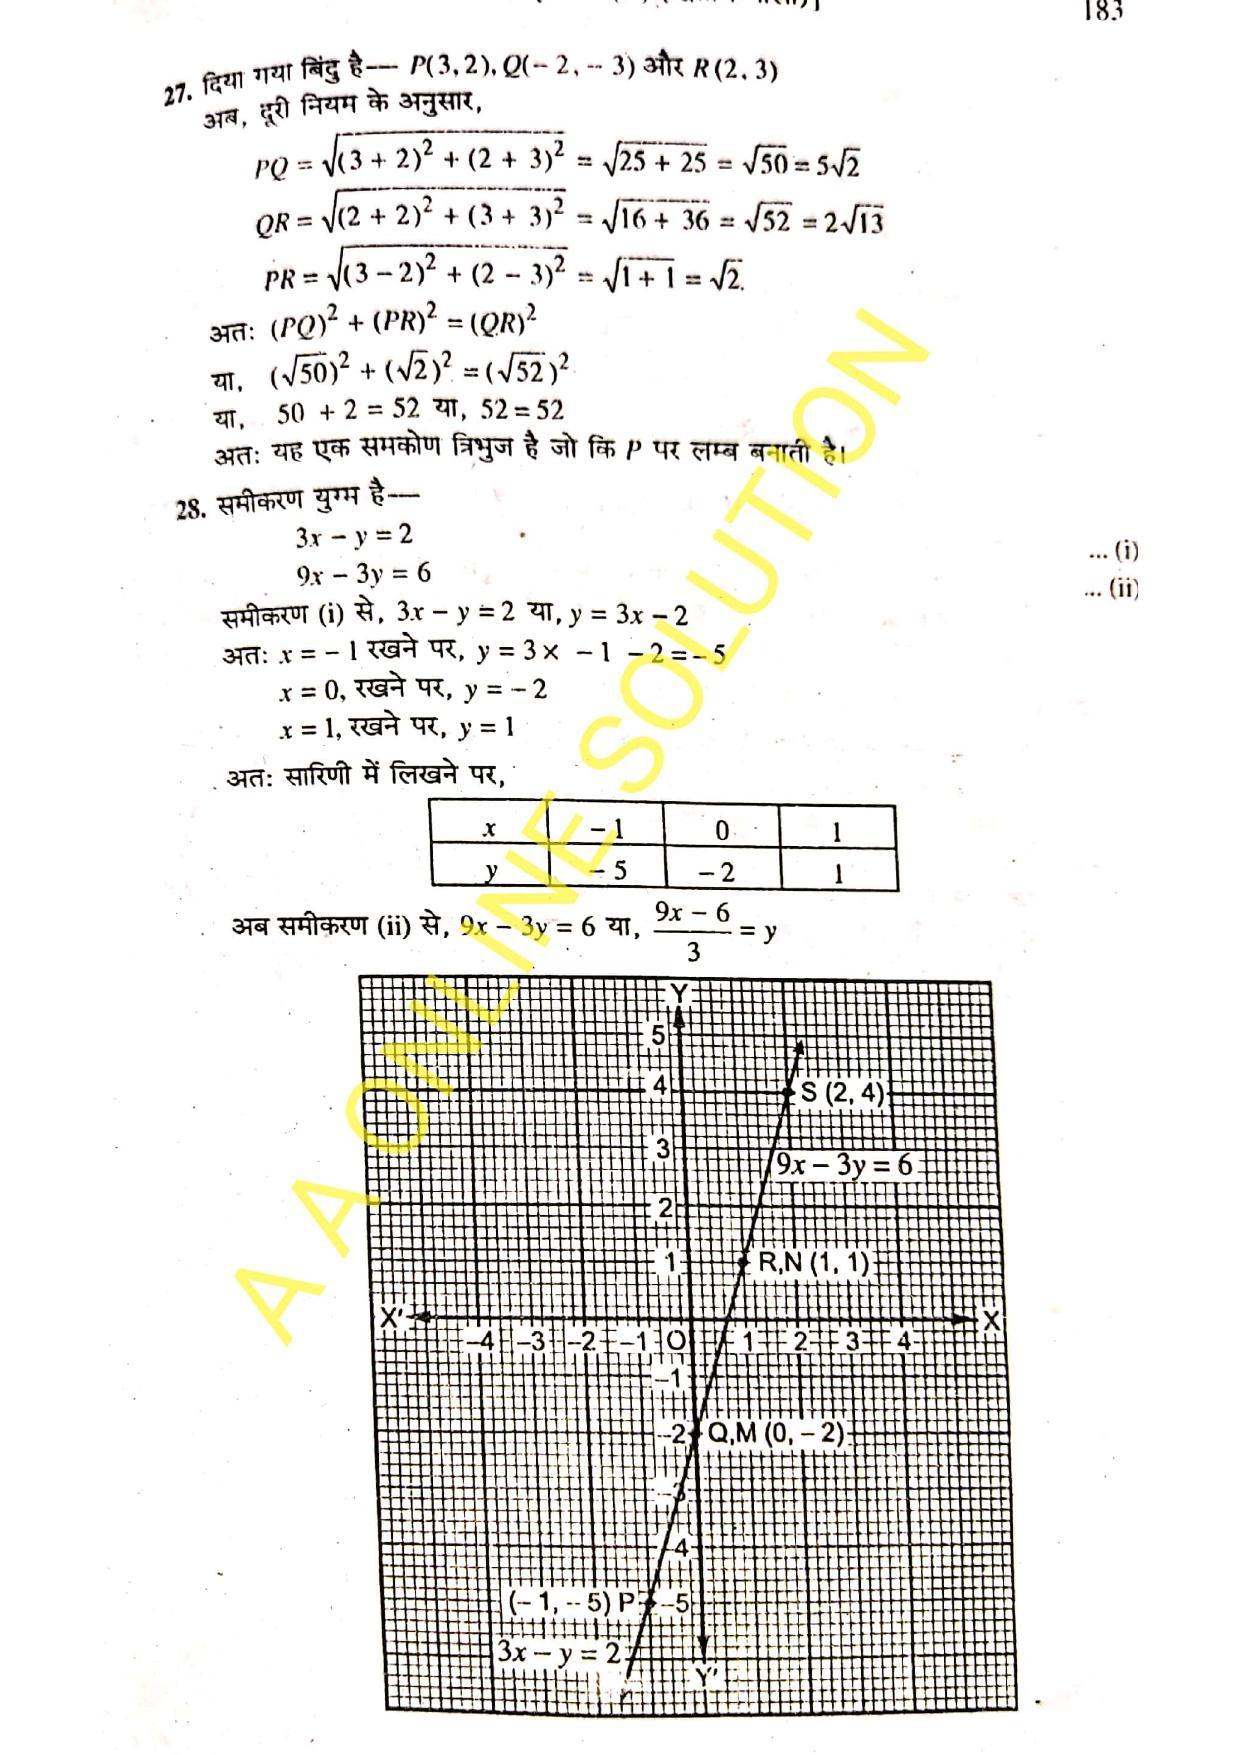 183
27. दिया गया बिंदु है— P(3, 2), Q(– 2, – 3) और R (2, 3)
अब, दूरी नियम के अनुसार,
PQ = √(3 + 2)² + (2 + 3)² = √25 + 25 = √50 = 5√2
QR = √(2 + 2)² + (3 + 3)² = √16 + 36 = √52 = 2√13
PR = √(3 – 2)² + (2 – 3)² = √1 + 1 = √2.
अतः (PQ)² + (PR)² = (QR)²
या, (√50)² + (√2)² = (√52)²
या, 50 + 2 = 52 या, 52 = 52
अतः यह एक समकोण त्रिभुज है जो कि P पर लम्ब बनाती है।
28. समीकरण युग्म है—
3x – y = 2 ... (i)
9x – 3y = 6 ... (ii)
समीकरण (i) से, 3x – y = 2 या, y = 3x – 2
अतः x = – 1 रखने पर, y = 3 × – 1 – 2 = – 5
x = 0, रखने पर, y = – 2
x = 1, रखने पर, y = 1
अतः सारिणी में लिखने पर,
x – 1 0 1
y – 5 – 2 1
अब समीकरण (ii) से, 9x – 3y = 6 या, (9x – 6)/3 = y
Y
5
4 S (2, 4)
3 9x – 3y = 6
2
1 R,N (1, 1)
X' X
–4 –3 –2 –1 O 1 2 3 4
–1
–2 Q,M (0, – 2)
–3
–4
(– 1, – 5) P –5
3x – y = 2 Y'
A A ONLINE SOLUTION